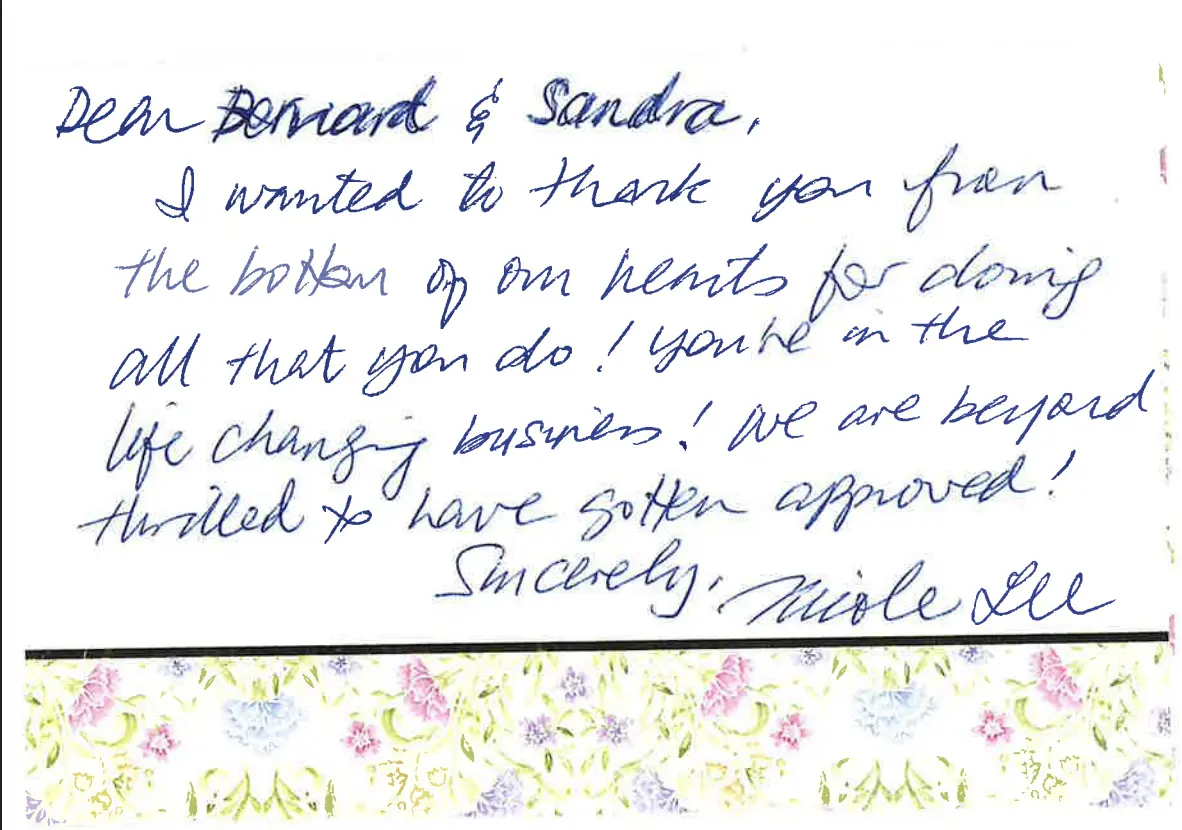 Dear Bernard & Sandra,
I wanted to thank you from
the bottom of our hearts for doing
all that you do! You're in the
life changing business! We are beyond
thrilled to have gotten approved!
Sincerely, Nicole Lee